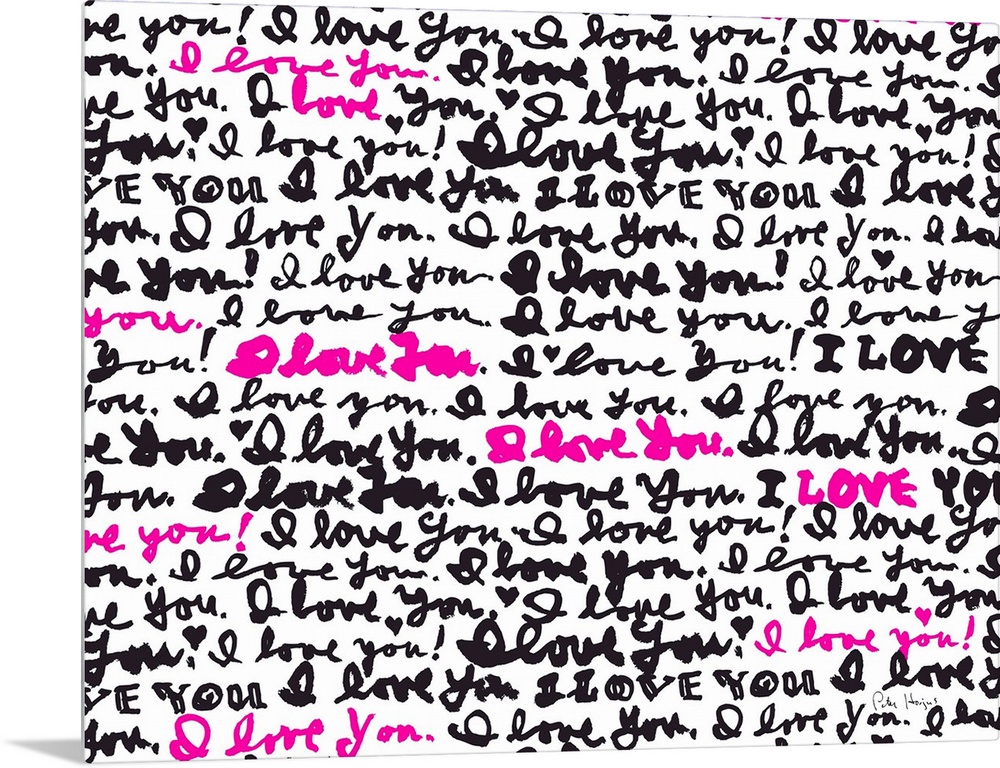 ve you! I love You. I love you! I love Yo
ou. I love you. I love You. I love you.
ve You. I love You. I love You. I love You
You. I love you! I love You. I love you!
VE YOU I love You I LOVE YOU I love Y
You. I love you. I love You. I love You. I lov
ve You! I love You I love You! I love You
you. I love you. I love you. I love y
You! I love You. I love You! I LOVE
You. I love you. I love You. I love you.
ve You. I love You. I love You. I love You
You. I love You. I love You. I LOVE YOU
ve you! I love You. I love you! I love Yo
ou. I love you. I love You. I love you.
ve You. I love You. I love You. I love You
You. I love you! I love You. I love you!
VE YOU I love You I LOVE YOU I love Y
You. I love You. I love You. I love You. I lov